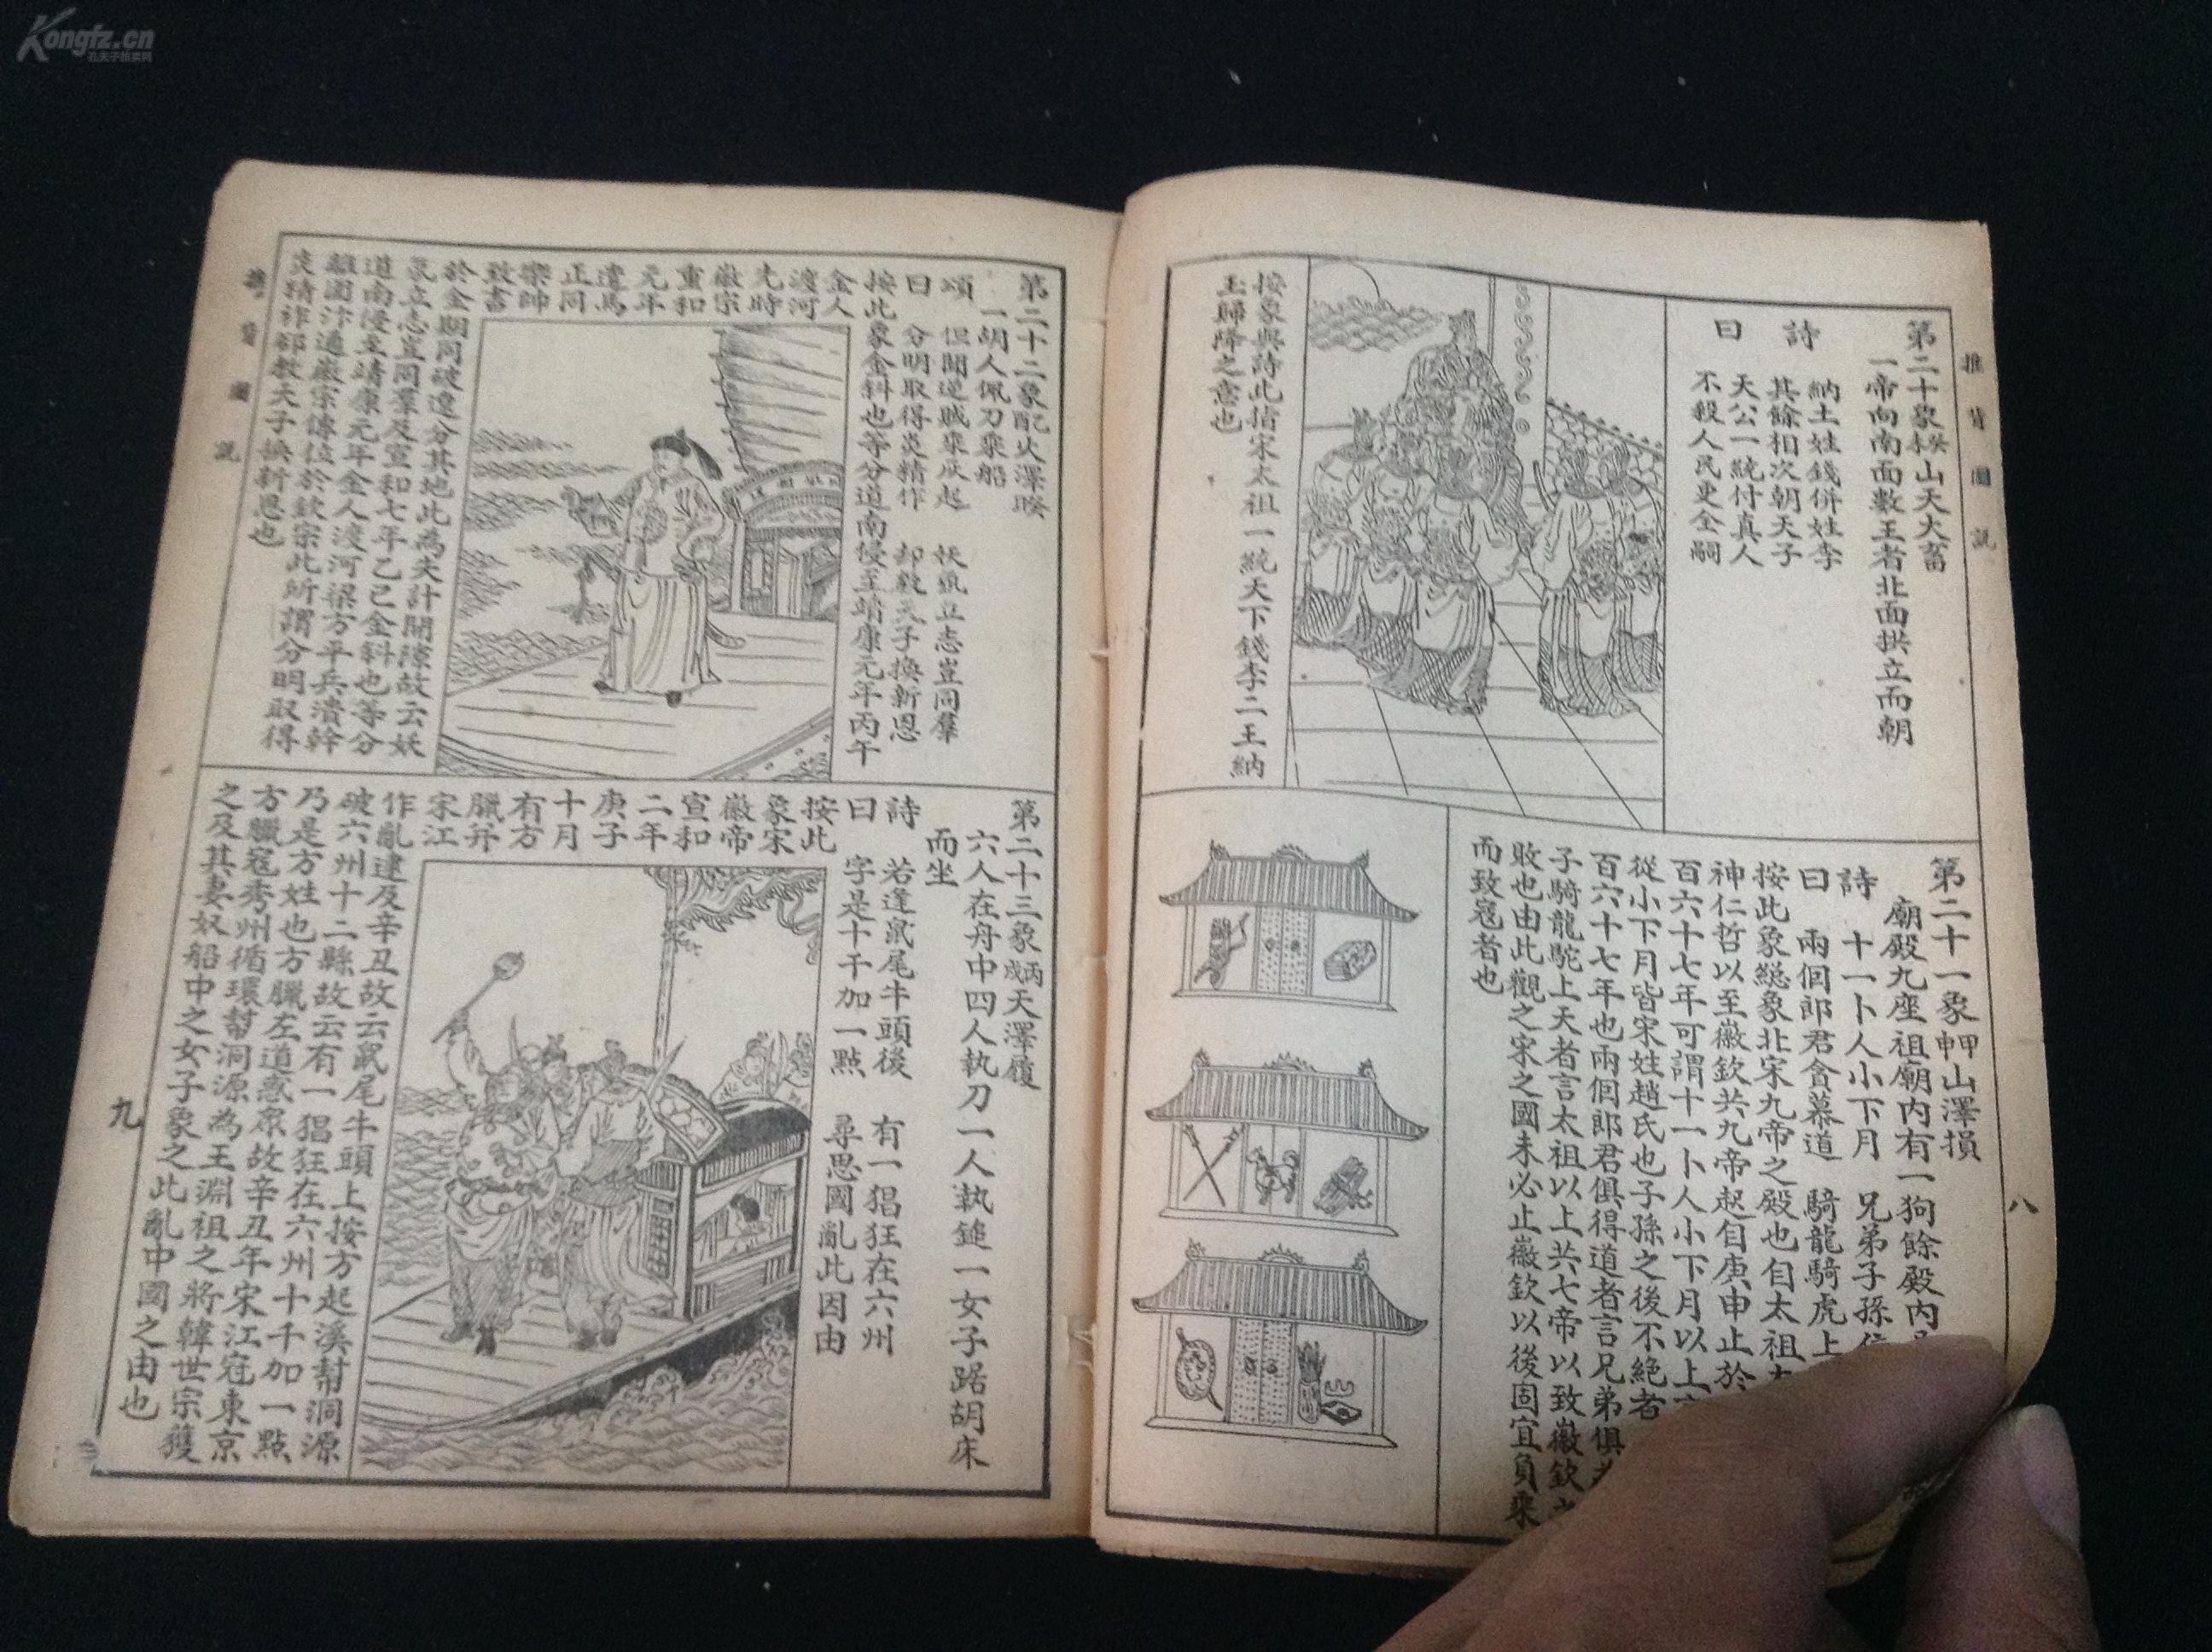 Kongfz.cn
孔夫子旧书网
推背圖説
八
第二十象癸山天大畜
一帝向南面數王者北面拱立而朝
詩曰
納土姓錢併姓李
其餘相次朝天子
天公一統付真人
不殺人民更全嗣
按象與詩此指宋太祖一統天下錢李二王納
土歸降之意也
第二十一象甲申山澤損
廟殿九座祖廟内有一狗餘殿内
詩曰
十一卜人小下月
兄弟子孫
兩個郎君貪慕道
騎龍騎虎上
按此象總象北宋九帝之殿也自太祖
神仁哲以至徽欽共九帝起自庚申止於
百六十七年可謂十一卜人小下月以上
從小下月皆宋姓趙氏也子孫之後不絶者
百六十七年也兩個郎君俱得道者言兄弟俱
子騎龍駝上天者言太祖以上共七帝以致徽欽
敗也由此觀之宋之國未必止徽欽以後固宜負乘
而致寇者也
推背圖説
九
第二十二象配火澤睽
一胡人佩刀乘船
頌曰
但聞逆賊乘瓜起
妖氛立志豈同羣
分明取得炎精作
却教天子換新恩
按此象金科也等分道南侵至靖康元年丙午
金人
渡河
先時
徽宗
重和
元年
遣馬
正同
樂帥
致書
於金期同破遼分其地此為失計開隙故云妖
氛立志豈同羣及宣和七年乙已金斜也等分
道南侵至靖康元年金人渡河梁方平兵潰幹
離圍汴逼徽宗傳位於欽宗此所謂分明取得
炎精祚却教天子換新恩也
第二十三象丙戌天澤履
六人在舟中四人執刀一人執鎚一女子踞胡床
而坐
詩曰
若逢䑕尾牛頭後
有一猖狂在六州
字是十千加一點
尋思國亂此因由
按此
象宋
徽帝
宣和
二年
庚子
十月
有方
臘并
宋江
作亂建及辛丑故云䑕尾牛頭上按方起溪幇洞源
破六州十二縣故云有一猖狂在六州十千加一點
乃是方姓也方臘左道惑眾故辛丑年宋江寇東京
方臘寇秀州循環幇洞源為王淵祖之將韓世宗獲
之及其妻奴船中之女子象之此亂中國之由也